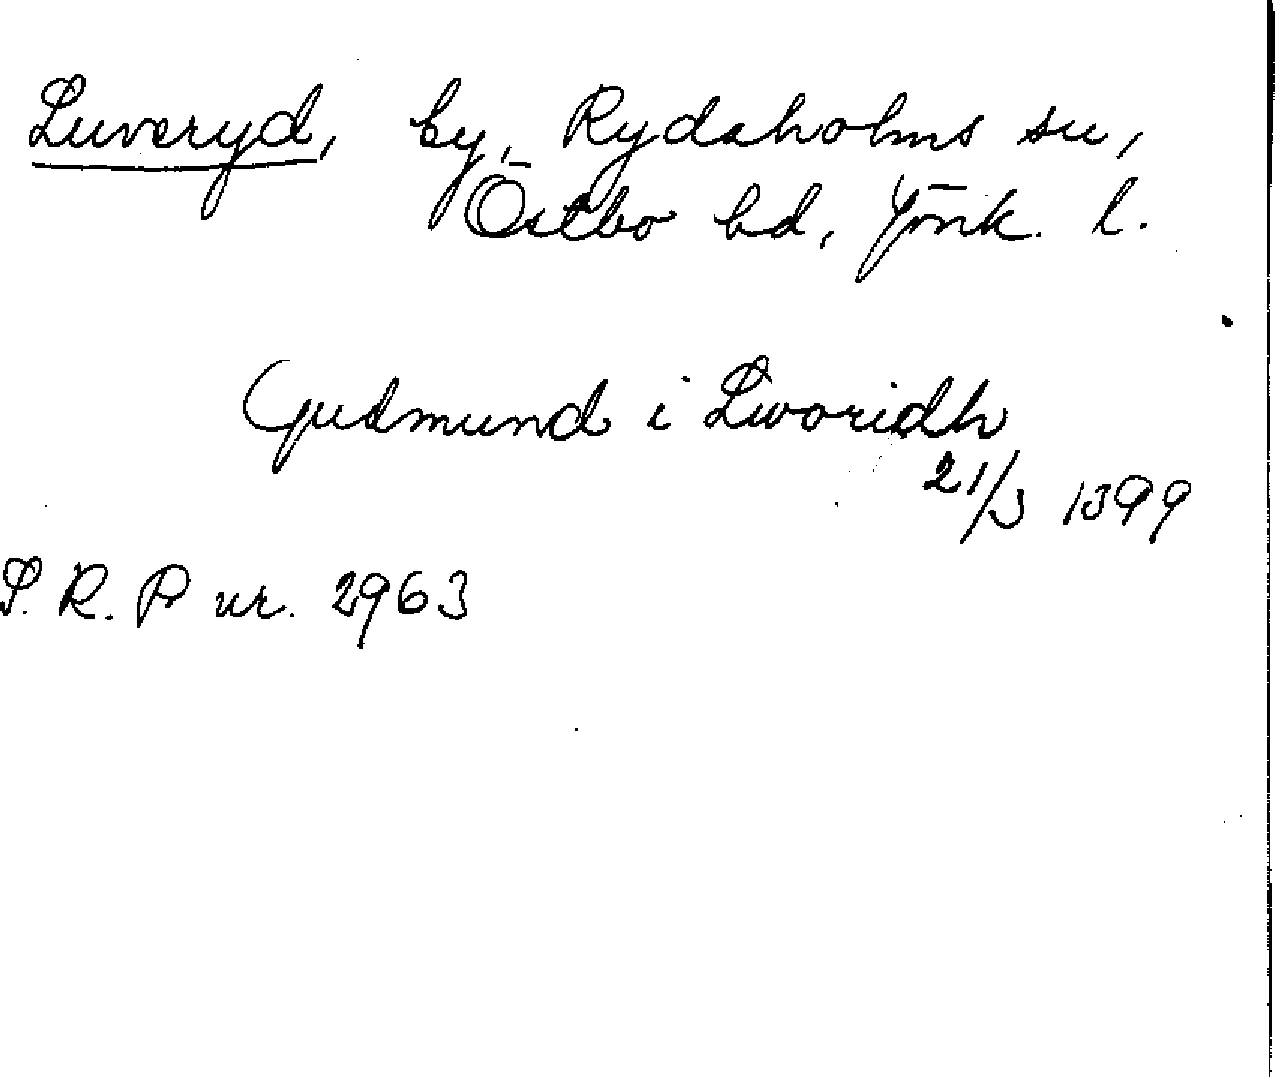 Luveryd, by, Rydaholms sn,
Östbo hd, Jönk. l.
Gudmund i Lworidh
21/3 1399
S. R. P nr. 2963